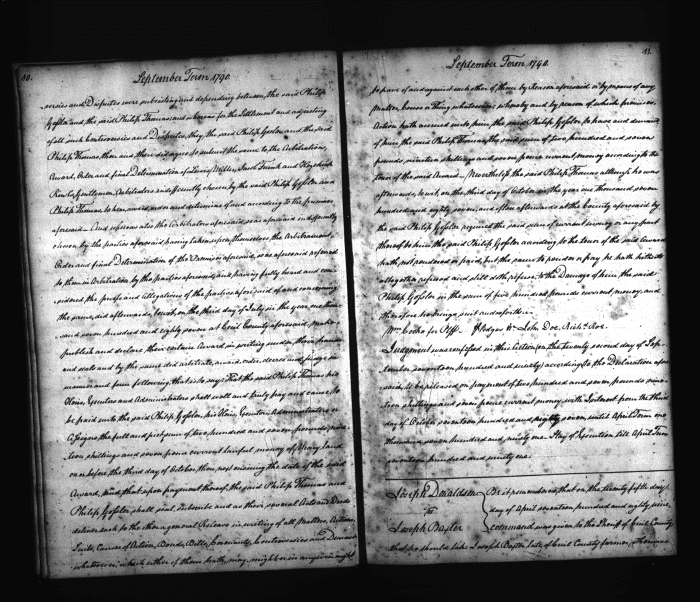 40.
September Term 1790.
versies and Disputes were subsisting and depending between the said Philip
Gosler and the said Philip Thomas and whereas for the settlement and adjusting
of all such Controversies and Disputes, they the said Philip Gosler and the said
Philip Thomas then and there did agree to submit the same to the Arbitration,
Award, Order and final Determination of Lewis Miller, Jacob Frank and Hezekiah
Gentlemen, Arbitrators indifferently chosen by the said Philip Gosler and
Philip Thomas, to hear and determine of and according to the premises
aforesaid. And whereas also the Arbitrators aforesaid so as aforesaid indifferently
chosen by the parties aforesaid having taken upon themselves the Arbitrament
Order and final Determination of the Premises aforesaid, so as aforesaid referred
to them in Arbitration by the parties aforesaid, and having fully heard and con
sidered the proofs and Allegations of the parties aforesaid of and concerning
the same, did afterwards, to wit, on the third day of July in the year one thou
sand seven hundred and eighty seven at Cecil County aforesaid, make,
publish and declare their certain Award in writing under their hands
and seals and by the same did arbitrate, award, order, deem and judge in
manner and form following that is to say That the said Philip Thomas his
Heirs, Executors and Administrators shall well and truly pay and cause to
be paid unto the said Philip Gosler his Heirs, Executors, Administrators or
Assigns the full and just sum of two hundred and seven pounds, nine
teen shillings and seven pence current lawful money of Maryland
on or before the third day of October then next ensuing the date of the said
Award, And that upon payment thereof the said Philip Thomas and
Philip Gosler shall seal, subscribe and as their several Acts and Deeds
deliver each to the other a general Release in writing of all Matters, Actions,
Suits, Causes of Action, Bonds, Bills, Covenants, Controversies and Demands
whatsoever which either of them hath, may, might or in any wise ought
41.
September Term 1790.
to have of and against each other of them by Reason aforesaid or by means of any
matter, cause or thing whatsoever, whereby and by reason of which premises
Action hath accrued unto him the said Philip Gosler to have and demand
of him the said Philip Thomas the said sum of two hundred and seven
pounds nineteen shillings and seven pence current money according to the
tenor of the said Award. Nevertheless the said Philip Thomas although he was
afterwards, to wit, on the third day of October in the year one thousand seven
hundred and eighty seven, and often afterwards at the County aforesaid by
the said Philip Gosler required the said sum of current money or any part
thereof to him the said Philip Gosler according to the tenor of the said award
hath not rendered or paid, but the same to render or pay he hath hitherto
altogether refused and still doth refuse, to the Damage of him the said
Philip Gosler in the sum of five hundred pounds current money, and
therefore he brings suit and so forth.
Wm. Cooke for Plff. Pledges &c. John Doe, Richd. Roe.
Judgment was confessed in this Action, on the twenty second day of Sep
tember seventeen hundred and ninety according to the Declaration afore
said, to be released on payment of two hundred and seven pounds nine
teen shillings and seven pence current money, with Interest from the third
day of October seventeen hundred and eighty seven until April Term one
thousand seven hundred and ninety one. Stay of Execution till April Term
seventeen hundred and ninety one.
Joseph Donaldson
vs
Joseph Baxter
Be it remembered that on the twenty fifth day
day of April seventeen hundred and eighty nine
command was given to the Sheriff of Cecil County
that he should take Joseph Baxter late of Cecil County farmer, otherwise